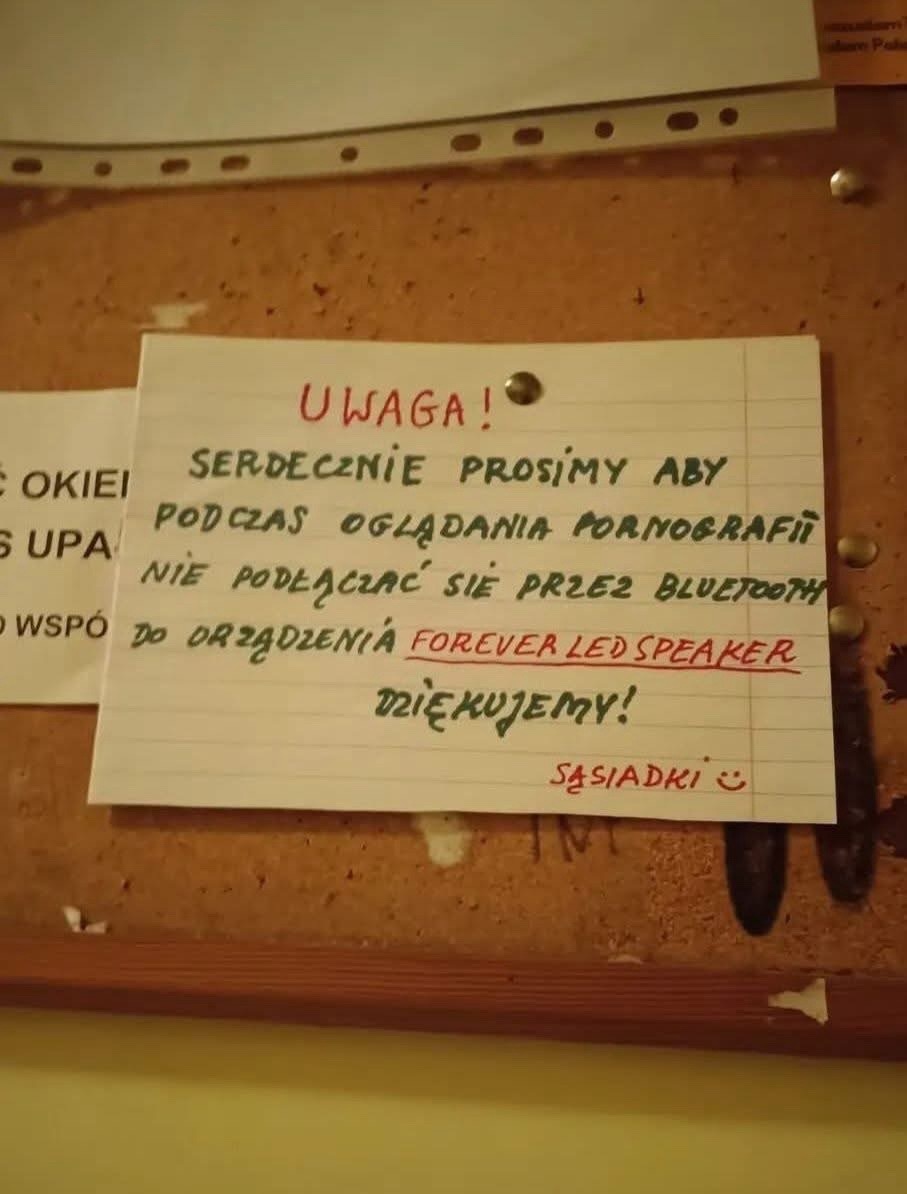 UWAGA!
SERDECZNIE PROSIMY ABY
PODCZAS OGLĄDANIA PORNOGRAFII
NIE PODŁĄCZAĆ SIĘ PRZEZ BLUETOOTH
DO URZĄDZENIA FOREVER LED SPEAKER
DZIĘKUJEMY!
SĄSIADKI :)
Ć OKIE
S UPA
O WSPÓ